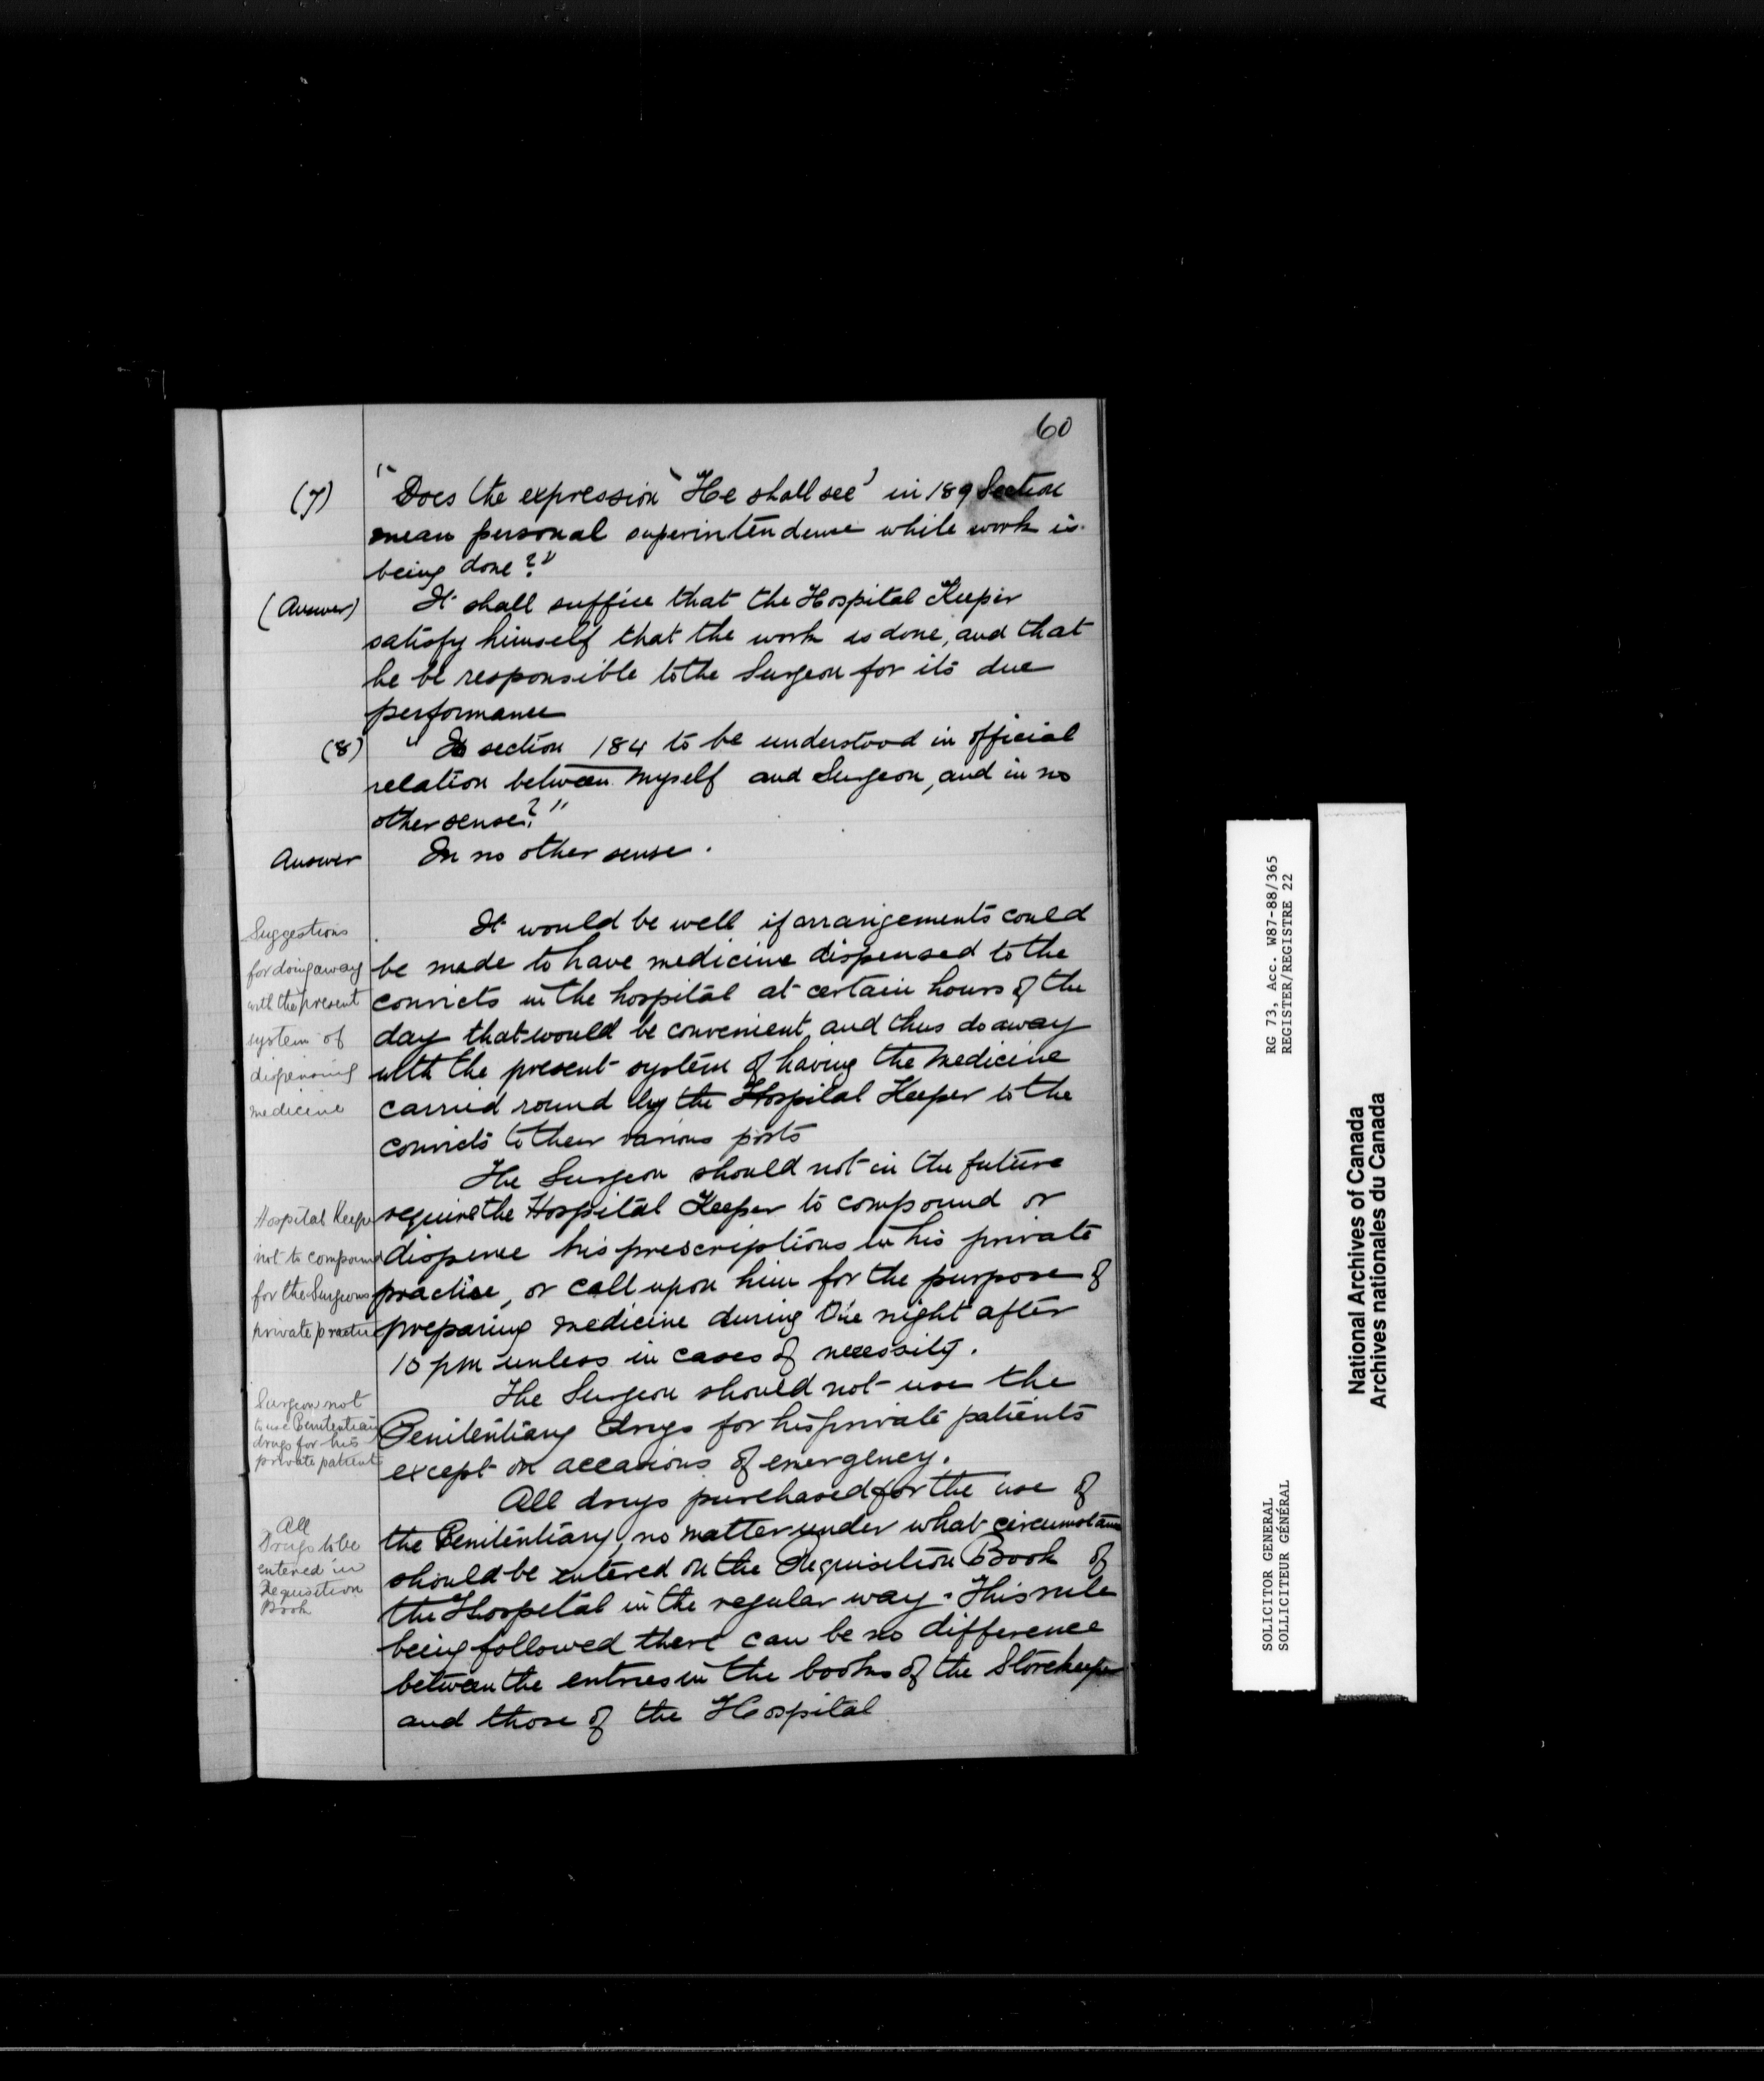 60
(7) "Does the expression 'He shall see' in 189 Section
mean personal superintendence while work is
being done?"
(Answer) It shall suffice that the Hospital Keeper
satisfy himself that the work is done, and that
he be responsible to the Surgeon for its due
performance
(8) "Is section 184 to be understood in official
relation between myself and Surgeon, and in no
other sense?"
Answer In no other sense.
Suggestions
for doing away
with the present
system of
dispensing
medicine
It would be well if arrangements could
be made to have medicine dispensed to the
convicts in the hospital at certain hours of the
day that would be convenient, and thus do away
with the present system of having the medicine
carried round by the Hospital Keeper to the
convicts to their various posts
Hospital Keeper
not to compound
for the Surgeons
private practice
The Surgeon should not in the future
require the Hospital Keeper to compound or
dispense his prescriptions in his private
practice, or call upon him for the purpose of
preparing medicine during the night after
10 pm unless in cases of necessity.
Surgeon not
to use Penitentiary
drugs for his
private patients
The Surgeon should not use the
Penitentiary drugs for his private patients
except on occasions of emergency.
All
Drugs to be
entered in
Requisition
Book
All drugs purchased for the use of
the Penitentiary, no matter under what circumstance
should be entered on the Requisition Book of
the Hospital in the regular way. This rule
being followed there can be no difference
between the entries in the books of the Storekeeper
and those of the Hospital
RG 73, Acc. W87-88/365
REGISTER/REGISTRE 22
SOLICITOR GENERAL
SOLLICITEUR GÉNÉRAL
National Archives of Canada
Archives nationales du Canada